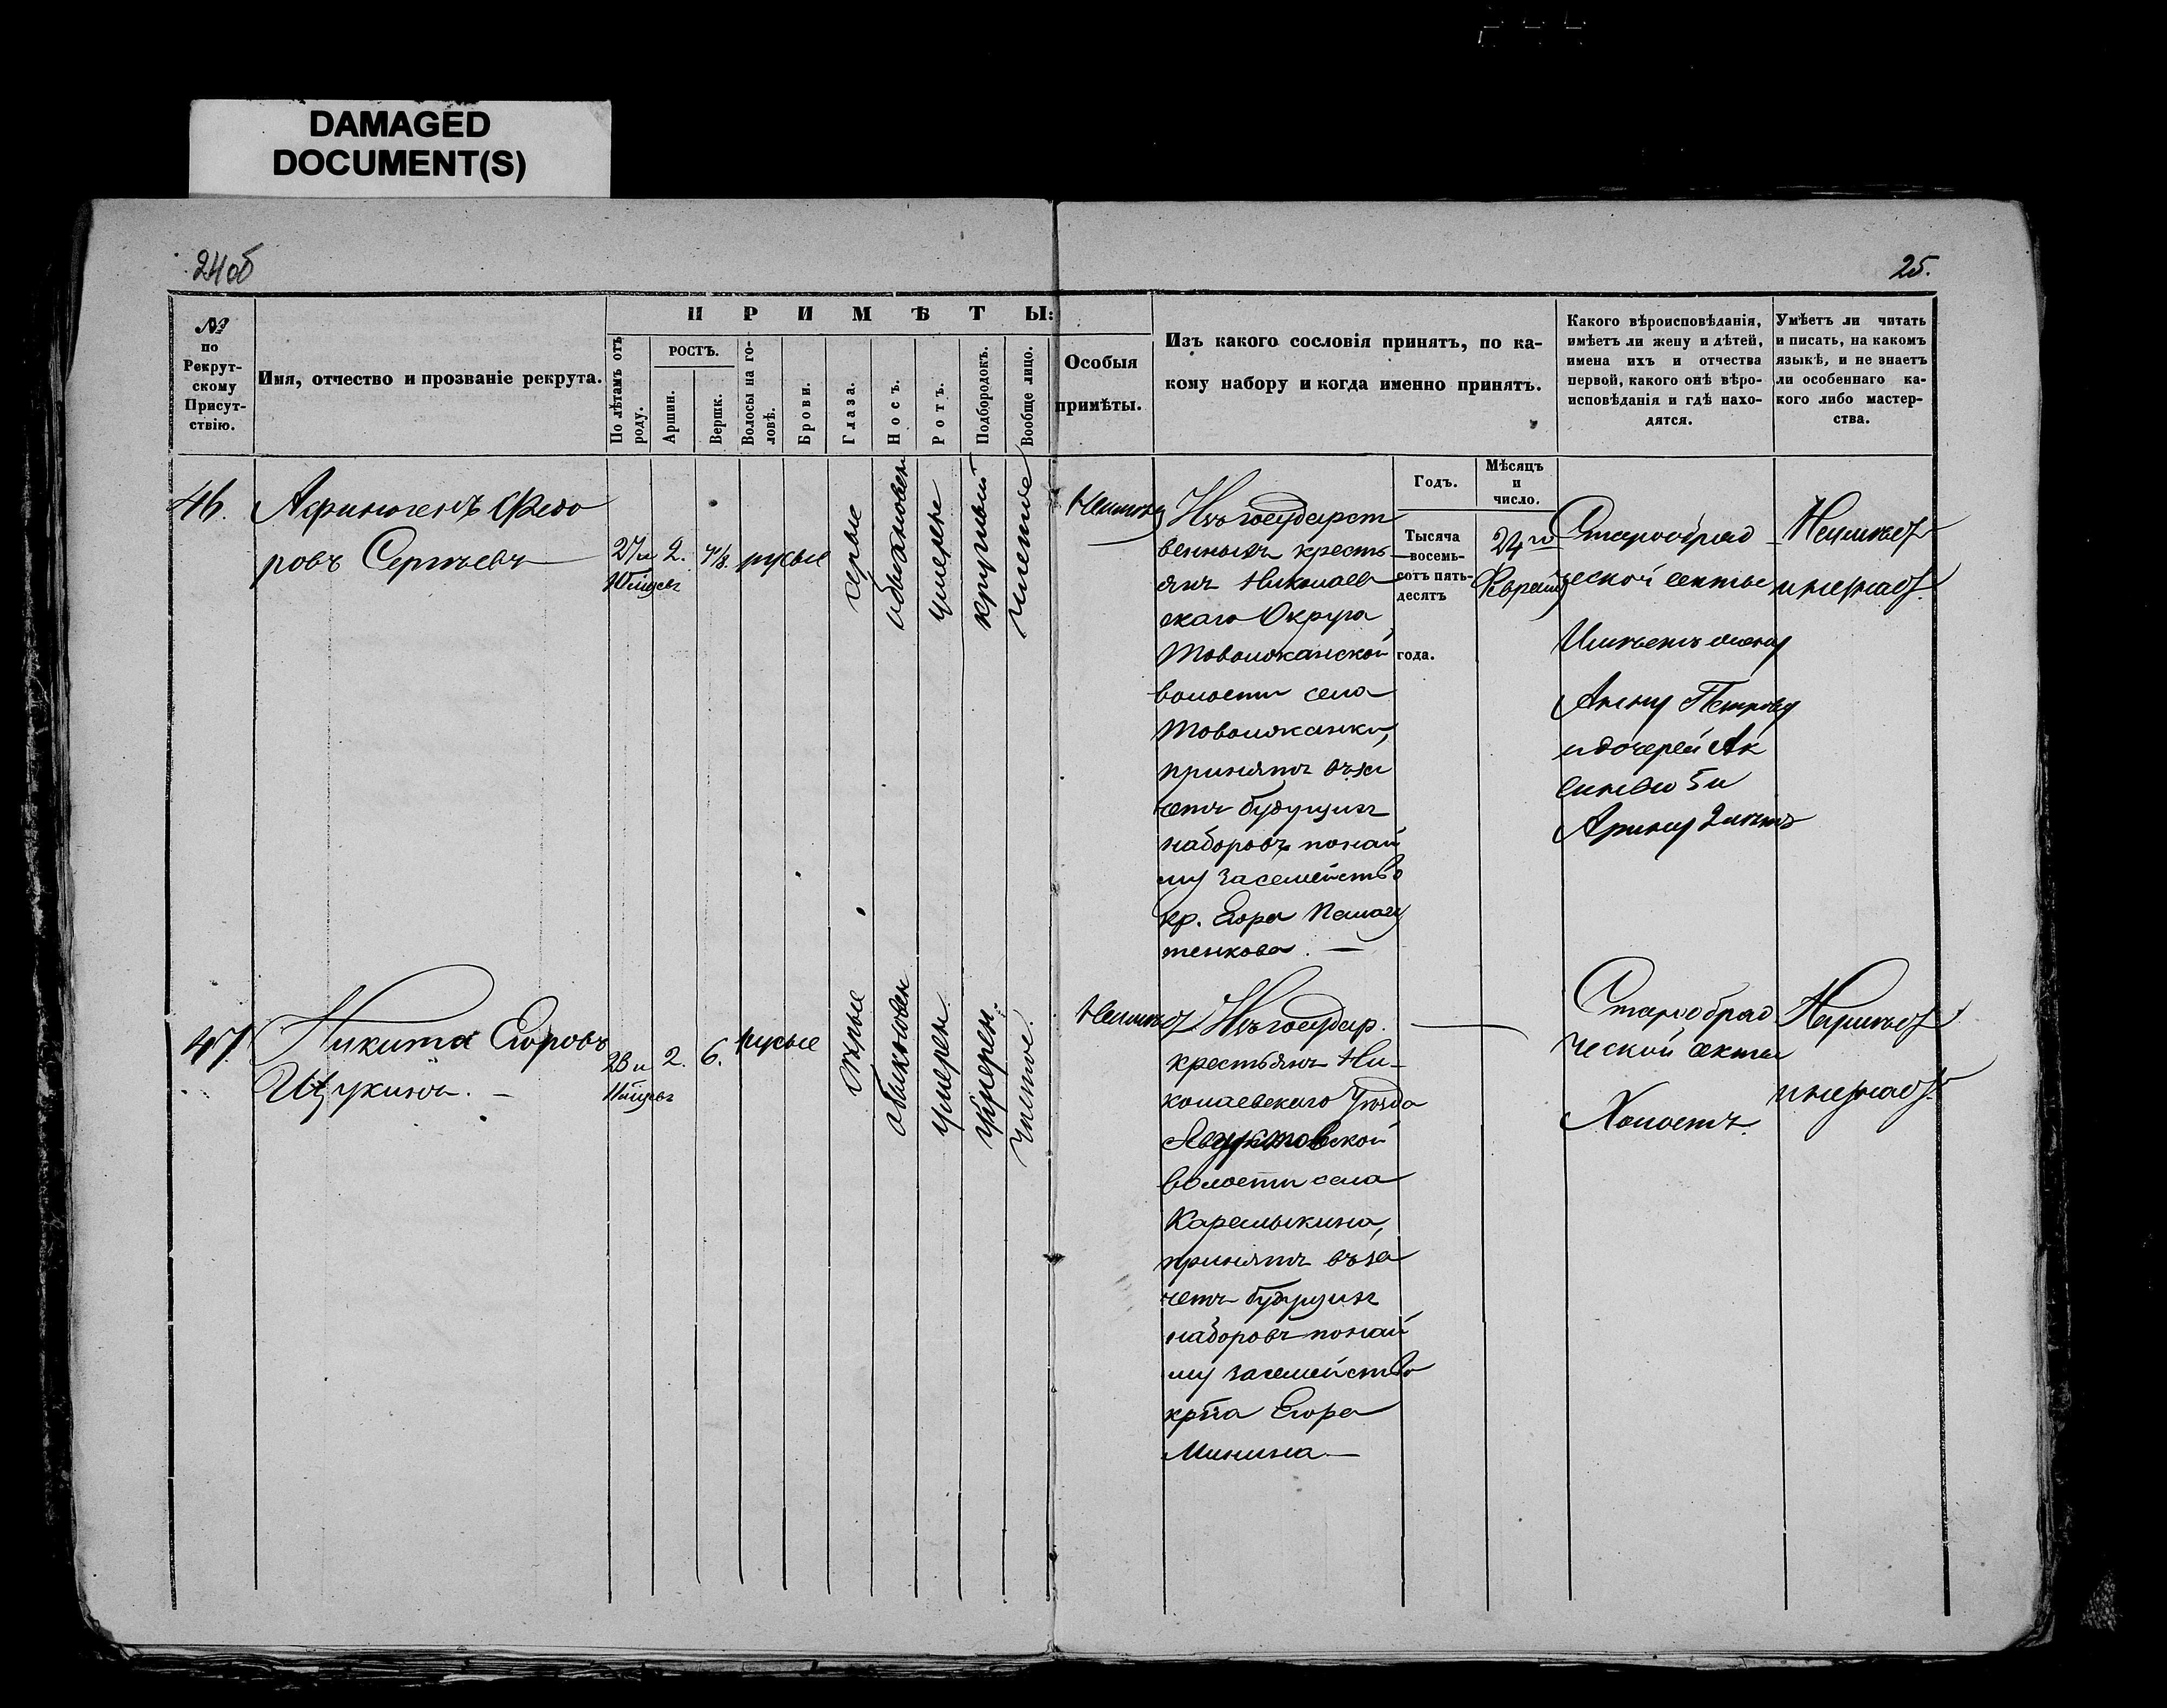 DAMAGED
DOCUMENT(S)
24об
25.
№
по
Рекрут-
скому
Присут-
ствію.
Имя, отчество и прозваніе рекрута.
ПРИМѢТЫ:
По лѣтамъ отъ роду.
РОСТЪ.
Аршин.
Вершк.
Волосы на го-
ловѣ.
Брови.
Глаза.
Носъ.
Ротъ.
Подбородокъ.
Вообще лицо.
Особыя
примѣты.
Изъ какого сословія принятъ, по ка-
кому набору и когда именно принятъ.
Годъ.
Мѣсяцъ
и
число.
Какого вѣроисповѣданія,
имѣетъ ли жену и дѣтей,
имена ихъ и отчества
первой, какого онѣ вѣро-
исповѣданія и гдѣ нахо-
дятся.
Умѣетъ ли читать
и писать, на какомъ
языкѣ, и не знаетъ
ли особеннаго ка-
кого либо мастер-
ства.
46.
Афиногенъ Федо
ровъ Сергѣевъ
27 и
2.
4 1/8.
русые
серые
обыкновен
умерен
круглый
чистое
Изъ государст
венныхъ кресть
янъ Николаев
скаго Округа
Товолжанской
волости села
Товолжанки,
принятъ въ за
четъ будущихъ
наборовъ по най
му за семейство
кр. Егора
тенкова. —
Тысяча
восемь-
сотъ пять-
десятъ
года.
24го
Старообряд
ческой секты
Имѣетъ жену
Анну Петрову
и дочерей Ак
синью 5 и
Арину 2 лѣтъ
Неумѣет
и не знает.
47.
Никита Егоровъ
Щукинъ. —
2.
6.
русые
обыкновен
умерен
умерен.
чистое.
Изъ государ.
крестьянъ Ни-
колаевскаго Уѣзда
волости села
Каралыкина,
принятъ въ за
четъ будущихъ
наборовъ по най
му за семейство
кр-на Егора
Минина —
Старообряд
ческой секты
Холостъ.
Неумѣет
и не знает.